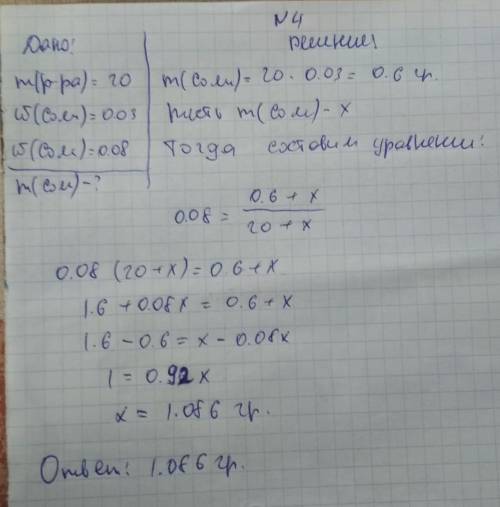 N4
Дано:
Решение
m(р-ра) = 20
ω(соли) = 0.03
ω(соли) = 0.08
m(соли) - ?
m(соли) = 20 · 0.03 = 0.6 гр.
Пусть m(соли) - x
Тогда составим уравнение:
0.08 = 0.6 + x / 20 + x
0.08 (20 + x) = 0.6 + x
1.6 + 0.08x = 0.6 + x
1.6 - 0.6 = x - 0.08x
1 = 0.92x
x = 1.086 гр.
Ответ: 1.086 гр.